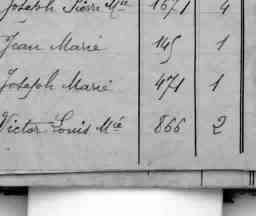 Joseph Pierre Mie 1671 4
Jean Marie 145 1
Joseph Marie 471 1
Victor Louis Mie 866 2